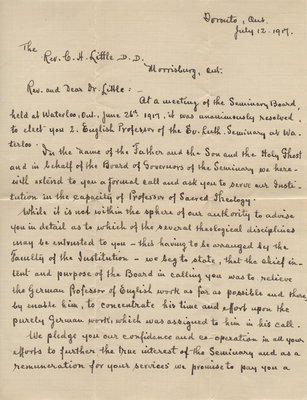 Toronto, Ont.
July 12. 1917.
The
Rev. C. H. Little D. D.
Morrisburg, Ont.
Rev. and Dear Dr. Little: -
At a meeting of the Seminary Board,
held at Waterloo, Ont., June 26th 1917, it was unanimously resolved
to elect you 2. English Professor of the Ev. Luth. Seminary at Wa-
terloo.
In the name of the Father and the Son and the Holy Ghost
and in behalf of the Board of Governors of the Seminary we here-
with extend to you a formal call and ask you to serve our Insti-
tution in the capacity of Professor of Sacred Theology.
While it is not within the sphere of our authority to advise
you in detail as to which of the several theological disciplines
may be entrusted to you - this having to be arranged by the
Faculty of the Institution - we beg to state, that the chief in-
tent and purpose of the Board in calling you was to relieve
the German Professor of English work as far as possible and there
by enable him, to concentrate his time and effort upon the
purely German work, which was assigned to him in his call.
We pledge you our confidence and co-operation in all your
efforts to further the true interest of the Seminary and as a
remuneration for your services we promise to pay you a